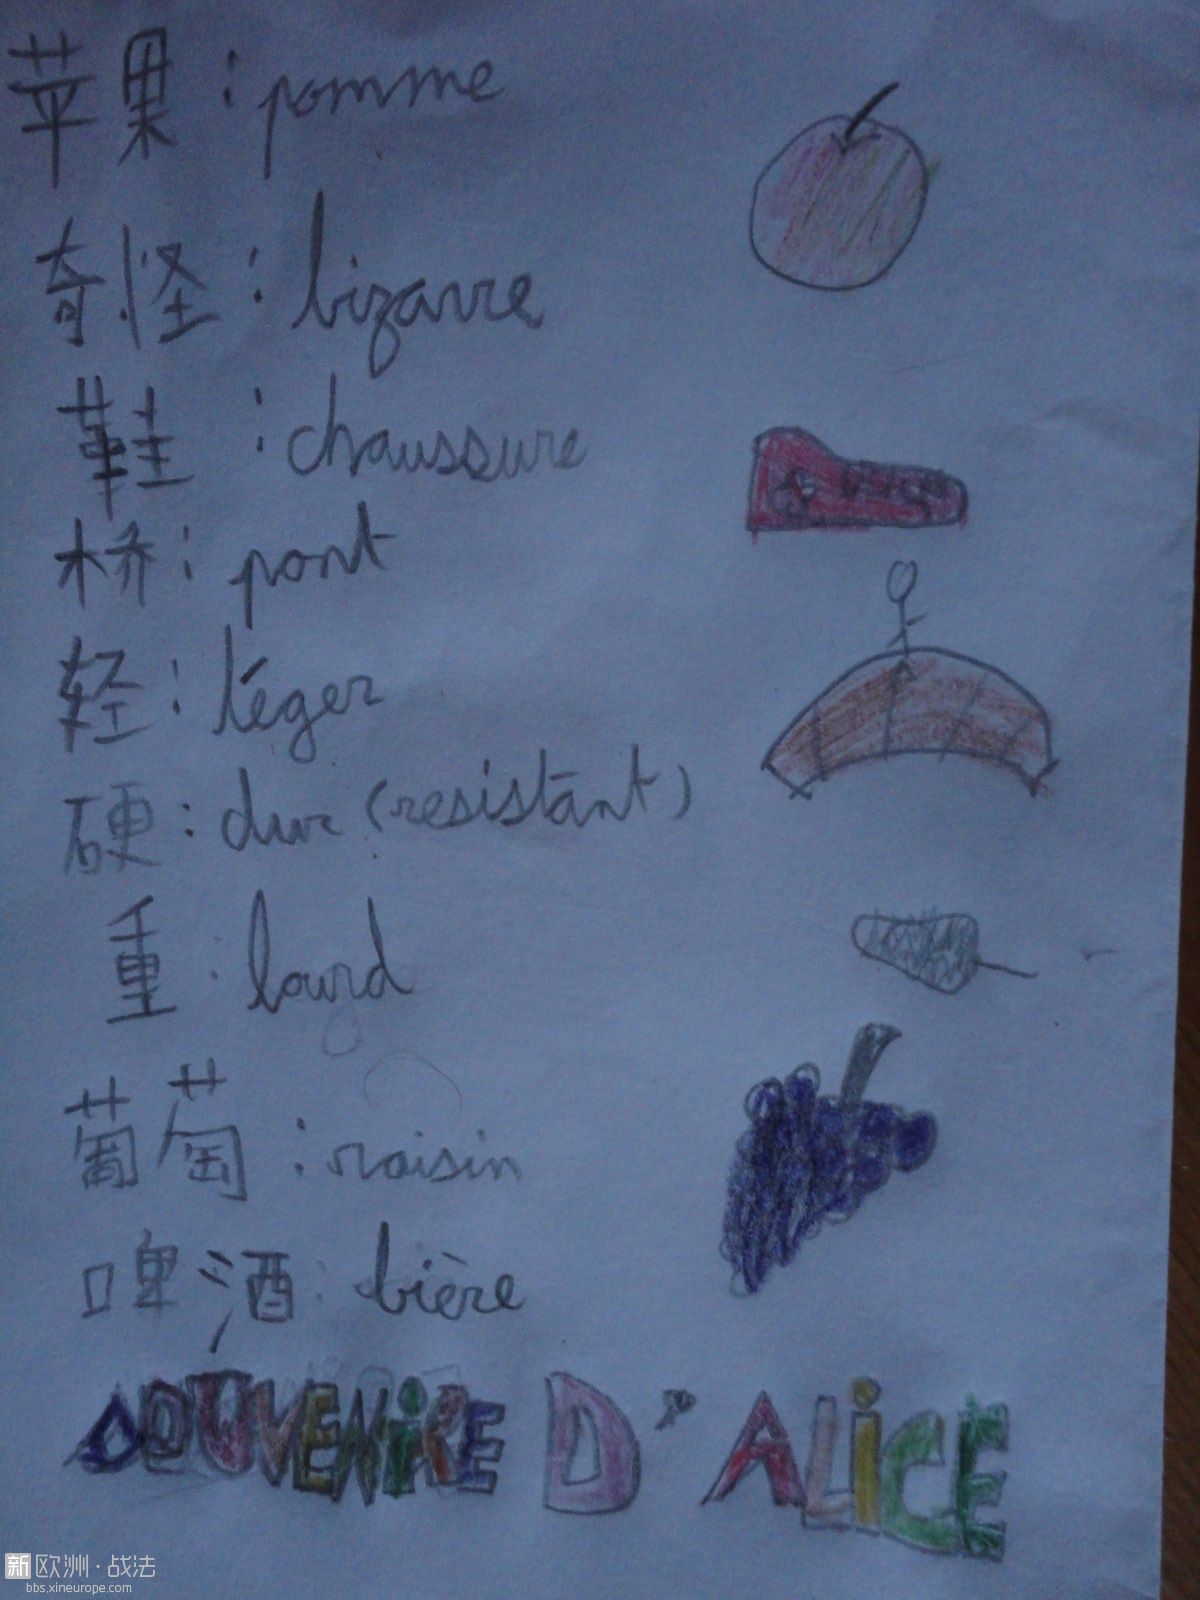 苹果：pomme
奇怪：bizarre
鞋：chaussure
桥：pont
轻：léger
硬：dur (resistant)
重：lourd
葡萄：raisin
啤酒：bière
SOUVENiRE D'ALiCE
新欧洲·战法
bbs.xineurope.com